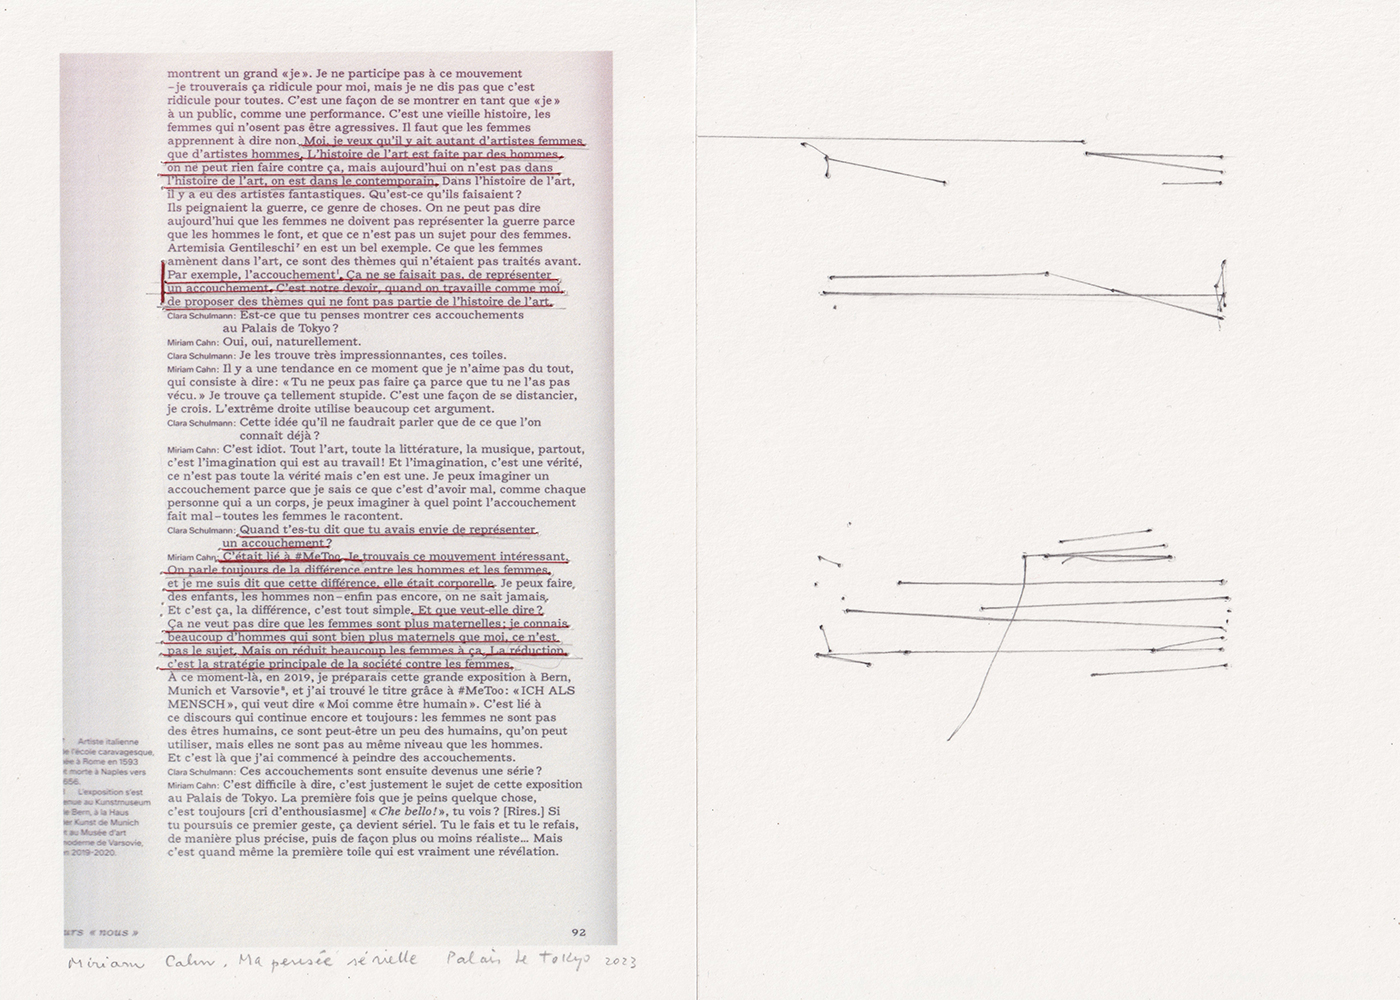 montrent un grand « je ». Je ne participe pas à ce mouvement
–je trouverais ça ridicule pour moi, mais je ne dis pas que c'est
ridicule pour toutes. C'est une façon de se montrer en tant que « je »
à un public, comme une performance. C'est une vieille histoire, les
femmes qui n'osent pas être agressives. Il faut que les femmes
apprennent à dire non. Moi, je veux qu'il y ait autant d'artistes femmes
que d'artistes hommes. L'histoire de l'art est faite par des hommes,
on ne peut rien faire contre ça, mais aujourd'hui on n'est pas dans
l'histoire de l'art, on est dans le contemporain. Dans l'histoire de l'art,
il y a eu des artistes fantastiques. Qu'est-ce qu'ils faisaient ?
Ils peignaient la guerre, ce genre de choses. On ne peut pas dire
aujourd'hui que les femmes ne doivent pas représenter la guerre parce
que les hommes le font, et que ce n'est pas un sujet pour des femmes.
Artemisia Gentileschi⁷ en est un bel exemple. Ce que les femmes
amènent dans l'art, ce sont des thèmes qui n'étaient pas traités avant.
Par exemple, l'accouchement. Ça ne se faisait pas, de représenter
un accouchement. C'est notre devoir, quand on travaille comme moi,
de proposer des thèmes qui ne font pas partie de l'histoire de l'art.
Clara Schulmann : Est-ce que tu penses montrer ces accouchements
au Palais de Tokyo ?
Miriam Cahn : Oui, oui, naturellement.
Clara Schulmann : Je les trouve très impressionnantes, ces toiles.
Miriam Cahn : Il y a une tendance en ce moment que je n'aime pas du tout,
qui consiste à dire : « Tu ne peux pas faire ça parce que tu ne l'as pas
vécu. » Je trouve ça tellement stupide. C'est une façon de se distancier,
je crois. L'extrême droite utilise beaucoup cet argument.
Clara Schulmann : Cette idée qu'il ne faudrait parler que de ce que l'on
connaît déjà ?
Miriam Cahn : C'est idiot. Tout l'art, toute la littérature, la musique, partout,
c'est l'imagination qui est au travail ! Et l'imagination, c'est une vérité,
ce n'est pas toute la vérité mais c'en est une. Je peux imaginer un
accouchement parce que je sais ce que c'est d'avoir mal, comme chaque
personne qui a un corps, je peux imaginer à quel point l'accouchement
fait mal–toutes les femmes le racontent.
Clara Schulmann : Quand t'es-tu dit que tu avais envie de représenter
un accouchement ?
Miriam Cahn : C'était lié à #MeToo. Je trouvais ce mouvement intéressant.
On parle toujours de la différence entre les hommes et les femmes,
et je me suis dit que cette différence, elle était corporelle. Je peux faire
des enfants, les hommes non–enfin pas encore, on ne sait jamais.
Et c'est ça, la différence, c'est tout simple. Et que veut-elle dire ?
Ça ne veut pas dire que les femmes sont plus maternelles ; je connais
beaucoup d'hommes qui sont bien plus maternels que moi, ce n'est
pas le sujet. Mais on réduit beaucoup les femmes à ça. La réduction,
c'est la stratégie principale de la société contre les femmes.
À ce moment-là, en 2019, je préparais cette grande exposition à Bern,
Munich et Varsovie⁸, et j'ai trouvé le titre grâce à #MeToo : « ICH ALS
MENSCH », qui veut dire « Moi comme être humain ». C'est lié à
ce discours qui continue encore et toujours : les femmes ne sont pas
des êtres humains, ce sont peut-être un peu des humains, qu'on peut
utiliser, mais elles ne sont pas au même niveau que les hommes.
Et c'est là que j'ai commencé à peindre des accouchements.
Clara Schulmann : Ces accouchements sont ensuite devenus une série ?
Miriam Cahn : C'est difficile à dire, c'est justement le sujet de cette exposition
au Palais de Tokyo. La première fois que je peins quelque chose,
c'est toujours [cri d'enthousiasme] « Che bello! », tu vois ? [Rires.] Si
tu poursuis ce premier geste, ça devient sériel. Tu le fais et tu le refais,
de manière plus précise, puis de façon plus ou moins réaliste… Mais
c'est quand même la première toile qui est vraiment une révélation.
Artiste italienne
de l'école caravagesque,
née à Rome en 1593
et morte à Naples vers
1656.
L'exposition s'est
tenue au Kunstmuseum
de Bern, à la Haus
der Kunst de Munich
et au Musée d'art
moderne de Varsovie,
en 2019-2020.
urs « nous »
92
Miriam Cahn, Ma pensée sérielle Palais de Tokyo 2023